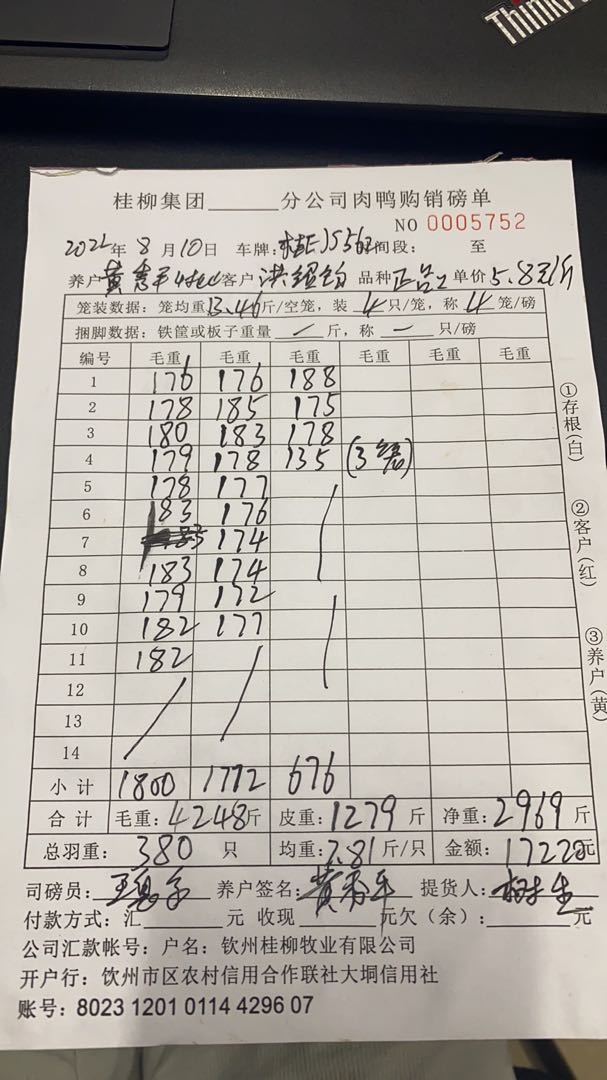 ThinkP
桂柳集团______分公司肉鸭购销磅单
NO 0005752
2021年 8 月 10 日 车牌: 时间段: 至
养户 黄 客户 洪 品种 正品 单价 5.8元/斤
笼装数据: 笼均重 13.46 斤/空笼, 装 4 只/笼, 称 4 笼/磅
捆脚数据: 铁筐或板子重量 一 斤, 称 一 只/磅
编号 毛重 毛重 毛重 毛重 毛重 毛重
1 176 176 188
2 178 185 175
3 180 183 178
4 179 178 135 (3笼)
5 178 177
6 183 176
7 174
8 183 174
9 179 172
10 182 177
11 182
12
13
14
小计 1800 1772 676
合计 毛重: 4248斤 皮重: 1279 斤 净重: 2969 斤
总羽重: 380 只 均重: 7.81 斤/只 金额: 17220元
司磅员: 养户签名: 黄 提货人:
付款方式: 汇______元 收现______元欠(余):______元
公司汇款帐号: 户名: 钦州桂柳牧业有限公司
开户行: 钦州市区农村信用合作联社大垌信用社
账号: 8023 1201 0114 4296 07
①存根(白)
②客户(红)
③养户(黄)